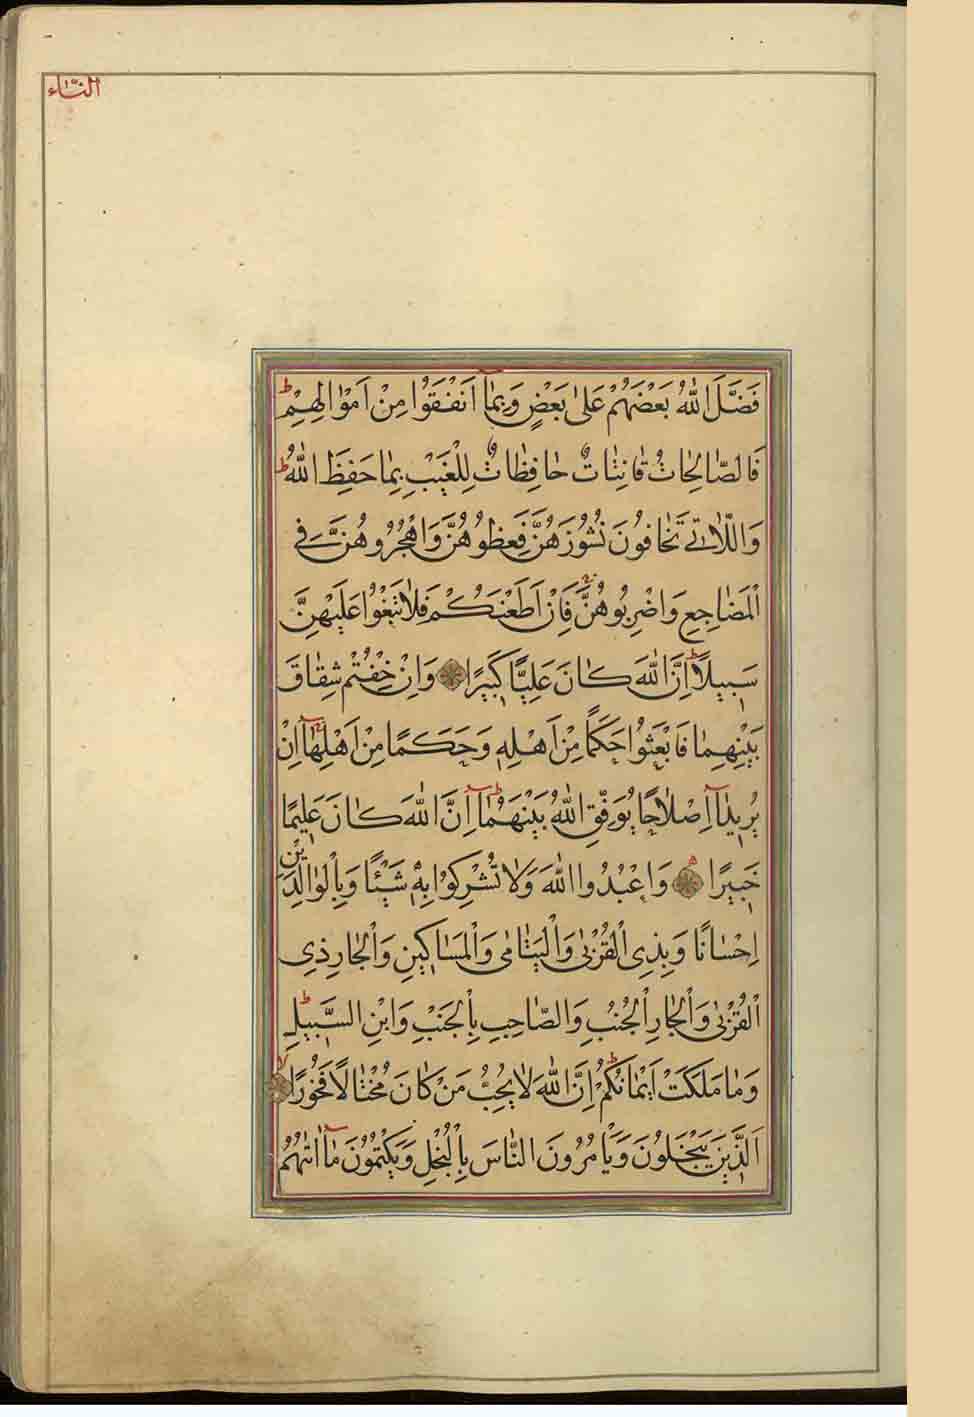 النساء
فَضَّلَ اللّٰهُ بَعْضَهُمْ عَلٰى بَعْضٍ وَبِمَٓا اَنْفَقُوا مِنْ اَمْوَالِهِمْ ط
فَالصَّالِحَاتُ قَانِتَاتٌ حَافِظَاتٌ لِلْغَيْبِ بِمَا حَفِظَ اللّٰهُ ط
وَاللَّاتٖى تَخَافُونَ نُشُوزَهُنَّ فَعِظُوهُنَّ وَاهْجُرُوهُنَّ فِى
الْمَضَاجِعِ وَاضْرِبُوهُنَّ فَاِنْ اَطَعْنَكُمْ فَلَا تَبْغُوا عَلَيْهِنَّ
سَبِيلًا ط اِنَّ اللّٰهَ كَانَ عَلِيًّا كَبِيرًا وَاِنْ خِفْتُمْ شِقَاقَ
بَيْنِهِمَا فَابْعَثُوا حَكَمًا مِنْ اَهْلِهٖ وَحَكَمًا مِنْ اَهْلِهَٓا اِنْ
يُرٖيدَٓا اِصْلَاحًا يُوَفِّقِ اللّٰهُ بَيْنَهُمَٓا ط اِنَّ اللّٰهَ كَانَ عَلِيمًا
خَبِيرًا وَاعْبُدُوا اللّٰهَ وَلَا تُشْرِكُوا بِهٖ شَيْئًا وَبِالْوَالِدَيْنِ
اِحْسَانًا وَبِذِى الْقُرْبٰى وَالْيَتَامٰى وَالْمَسَاكِينِ وَالْجَارِ ذِى
الْقُرْبٰى وَالْجَارِ الْجُنُبِ وَالصَّاحِبِ بِالْجَنْبِ وَابْنِ السَّبِيلِ ط
وَمَا مَلَكَتْ اَيْمَانُكُمْ ط اِنَّ اللّٰهَ لَا يُحِبُّ مَنْ كَانَ مُخْتَالًا فَخُورًا لا
اَلَّذِينَ يَبْخَلُونَ وَيَأْمُرُونَ النَّاسَ بِالْبُخْلِ وَيَكْتُمُونَ مَٓا اٰتٰهُمُ